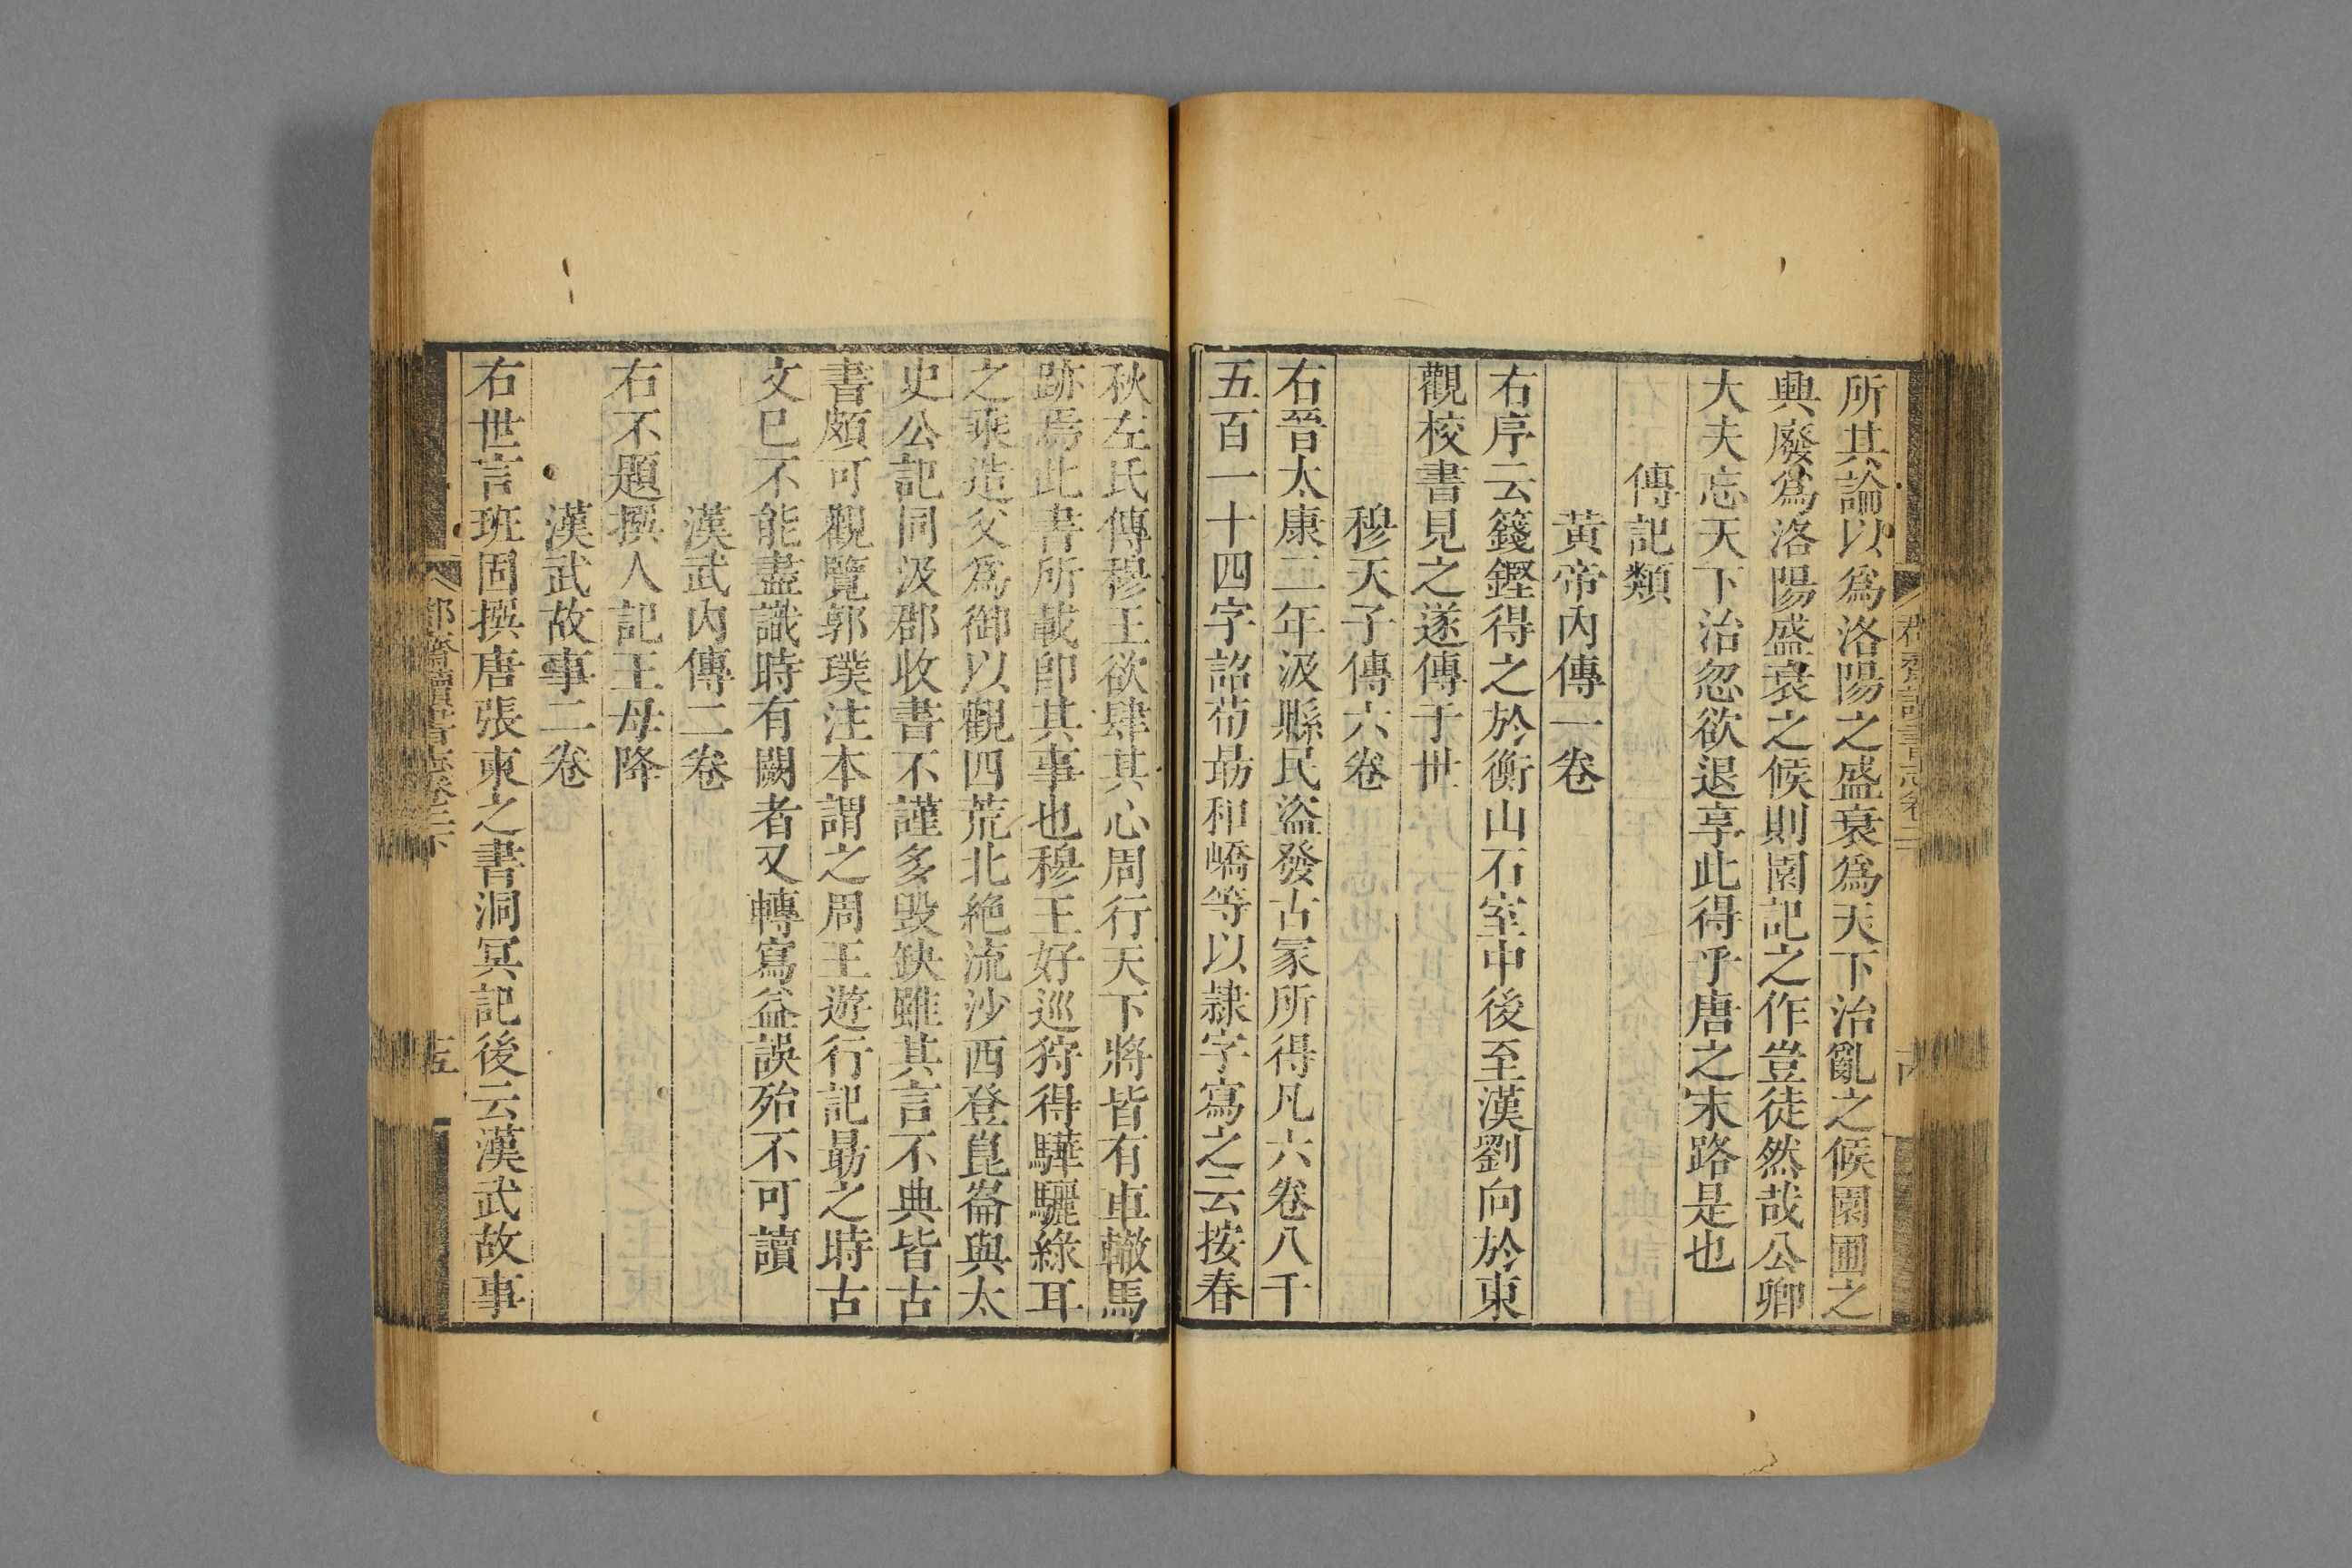 所其論以為洛陽之盛衰為天下治亂之候園圃之
興廢為洛陽盛衰之候則園記之作豈徒然哉公卿
大夫忘天下治忽欲退享此得乎唐之末路是也
傳記類
黃帝內傳一卷
右序云籛鏗得之於衡山石室中後至漢劉向於東
觀校書見之遂傳于世
穆天子傳六卷
右晉太康二年汲縣民盜發古冢所得凡六卷八千
五百一十四字詔荀勗和嶠等以隷字寫之云按春
秋左氏傳穆王欲肆其心周行天下將皆有車轍馬
跡焉此書所載卽其事也穆王好巡狩得驊驪綠耳
之乘造父為御以觀四荒北絶流沙西登崑崙與太
史公記同汲郡收書不謹多毀缺雖其言不典皆古
書頗可觀覽郭璞注本謂之周王遊行記勗之時古
文已不能盡識時有闕者又轉寫益誤殆不可讀
漢武內傳二卷
右不題撰人記王母降
漢武故事二卷
右世言班固撰唐張柬之書洞冥記後云漢武故事
郡齋讀書志卷二下